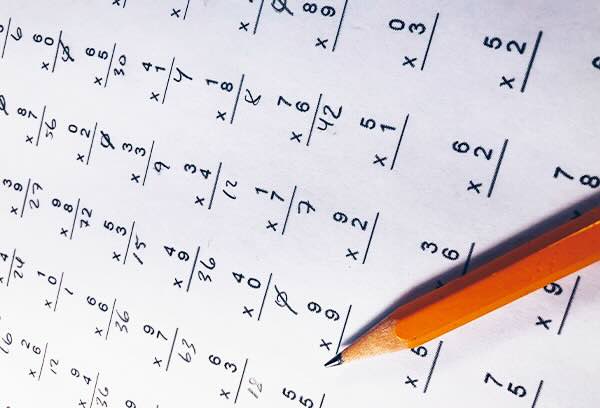 16
4
24
3
x 9
27
8
x 7
56
6
x 0
0
2
x 6
12
1
x 0
1
9
x 8
72
0
x 2
0
6
x 5
30
9
x 4
36
6
x 6
36
5
x 3
15
3
x 3
9
4
x 1
4
9
x 7
63
4
x 9
36
3
x 4
12
1
x 8
8
6
x 3
18
4
x 0
0
1
x 7
7
7
x 6
42
8
x 9
5
5
9
x 9
9
x 2
5
x 1
0
x 3
x 5
3
6
6
x 2
5
x 2
7
5
x 9
7
8